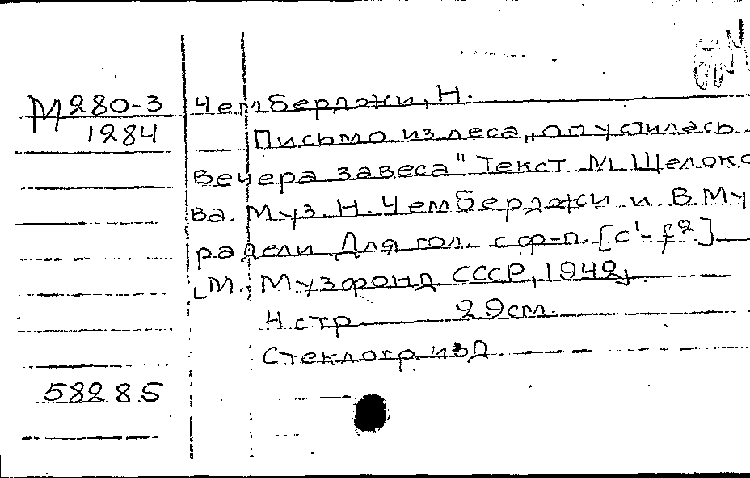 М280-3 Чемберджи, Н.
1284 Письмо из леса „опустилась
вечера завеса" Текст М. Щелоко
ва. Муз. Н. Чемберджи и В. Му
радели Для гол. с ф-п. [c¹-f²]
[М.; Музфонд СССР, 1942]
4 стр 29см.
Стеклогр. изд.
58285